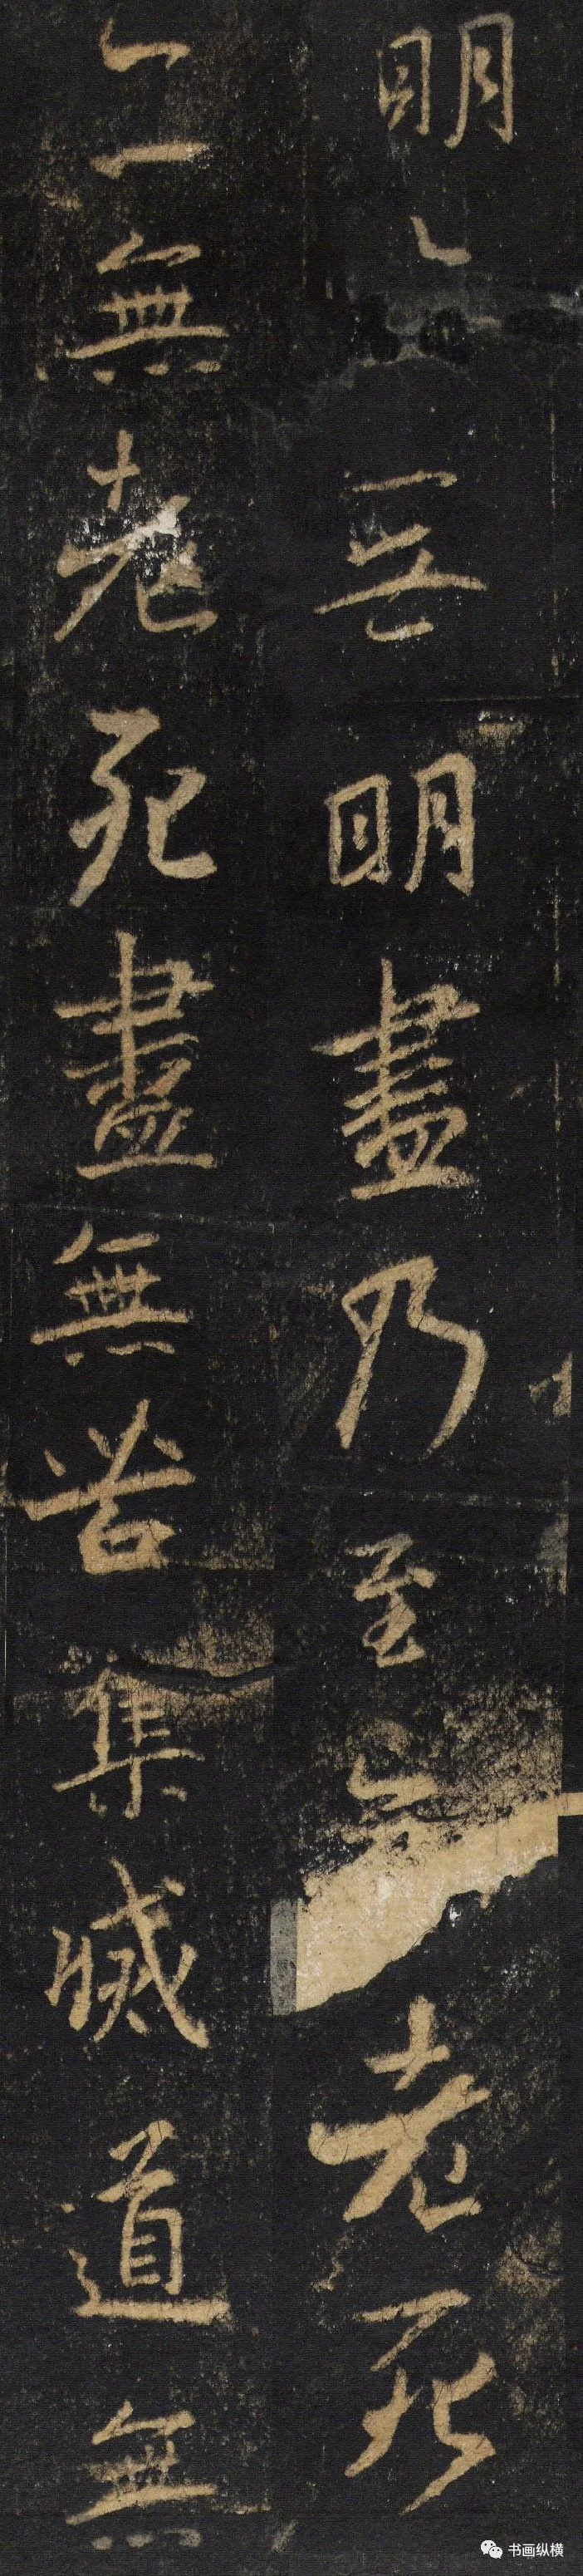 明無明盡乃至老死
無老死盡無苦集滅道無
书画纵横